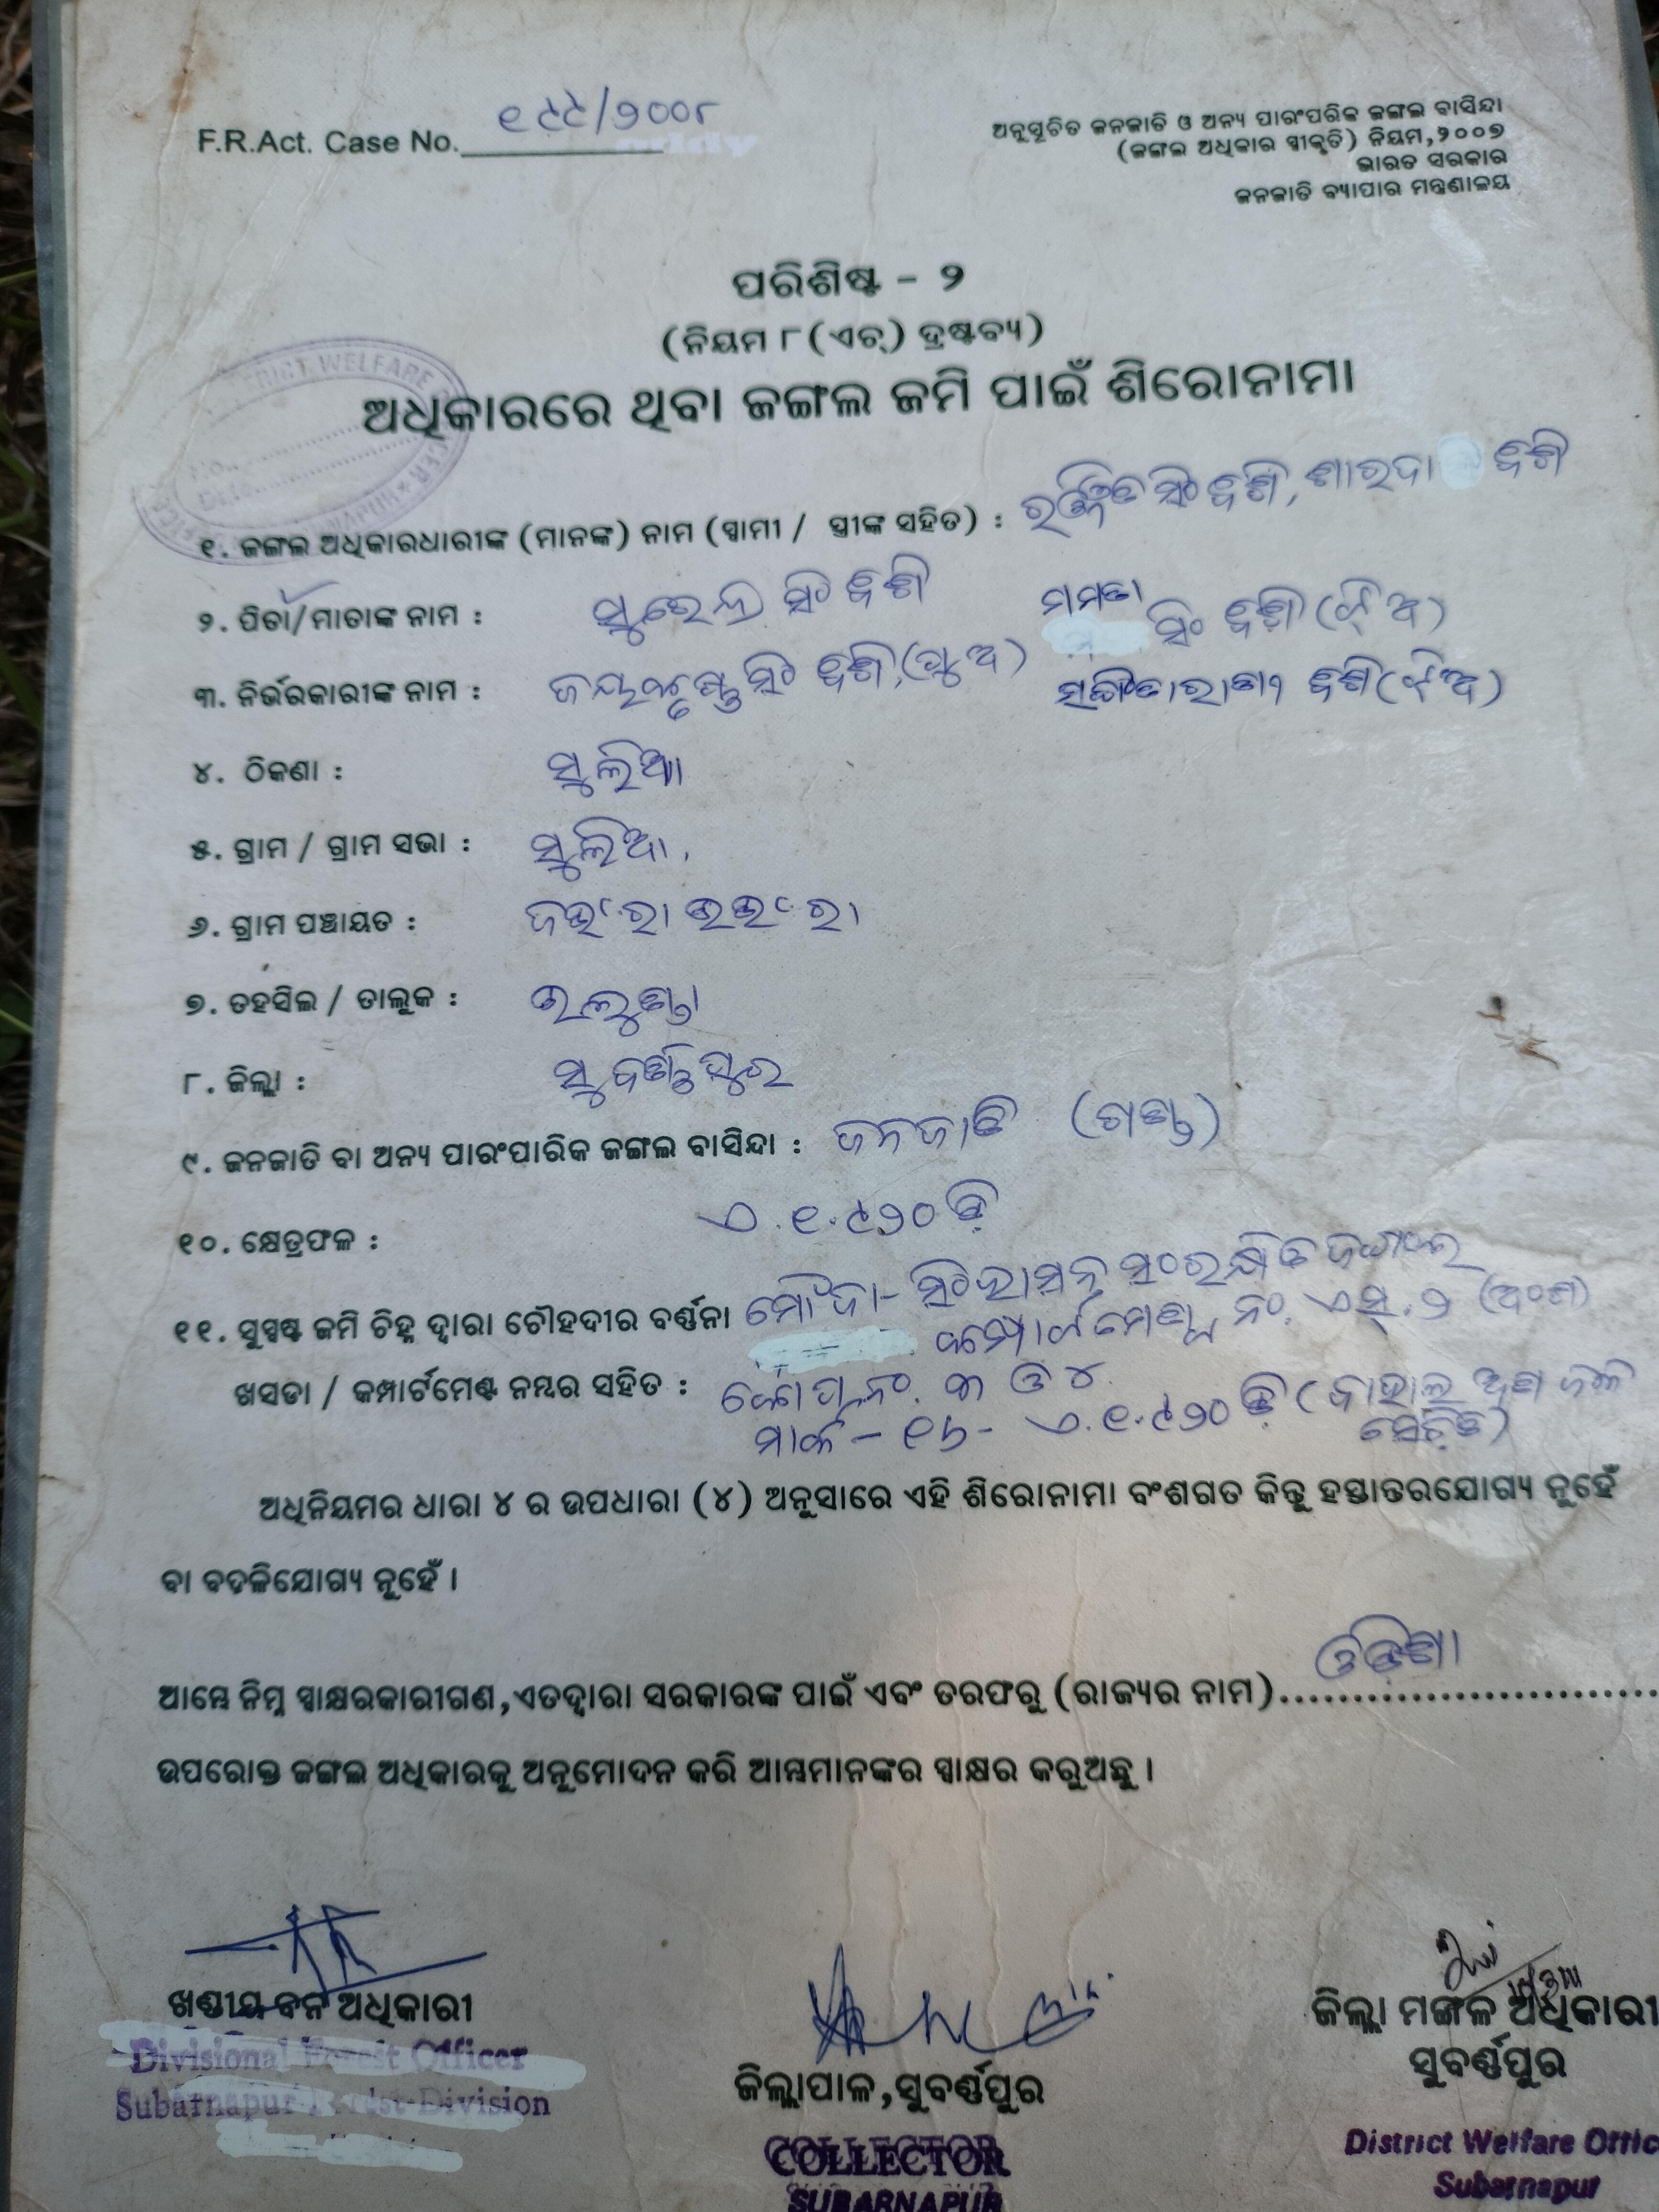 F.R.Act. Case No. ୧୯୯/୨୦୦୮
ଅନୁସୂଚିତ ଜନଜାତି ଓ ଅନ୍ୟ ପାରଂପରିକ ଜଙ୍ଗଲ ବାସିନ୍ଦା
(ଜଙ୍ଗଲ ଅଧିକାର ସ୍ୱୀକୃତି) ନିୟମ,୨୦୦୭
ଭାରତ ସରକାର
ଜନଜାତି ବ୍ୟାପାର ମନ୍ତ୍ରଣାଳୟ
ପରିଶିଷ୍ଟ - ୨
(ନିୟମ ୮ (ଏଚ୍) ଦ୍ରଷ୍ଟବ୍ୟ)
ଅଧିକାରରେ ଥିବା ଜଙ୍ଗଲ ଜମି ପାଇଁ ଶିରୋନାମା
୧. ଜଙ୍ଗଲ ଅଧିକାରଧାରୀଙ୍କ (ମାନଙ୍କ) ନାମ (ସ୍ୱାମୀ / ସ୍ତ୍ରୀଙ୍କ ସହିତ) : ରଞ୍ଜିତ ସିଂ ବଶି, ଶାରଦା ବଶି
୨. ପିତା/ମାତାଙ୍କ ନାମ : ସୁରେନ୍ଦ୍ର ସିଂ ବଶି ମମତା ସିଂ ବଶି (ଝିଅ)
୩. ନିର୍ଭରକାରୀଙ୍କ ନାମ : ସିଂ ବଶି, (ପୁଅ) ବଶି (ଝିଅ)
୪. ଠିକଣା : ସୁଲିଆ
୫. ଗ୍ରାମ / ଗ୍ରାମ ସଭା : ସୁଲିଆ
୬. ଗ୍ରାମ ପଞ୍ଚାୟତ :
୭. ତହସିଲ / ତାଲୁକ : ଉଲୁଣ୍ଡା
୮. ଜିଲ୍ଲା : ସୁବର୍ଣ୍ଣପୁର
୯. ଜନଜାତି ବା ଅନ୍ୟ ପାରଂପାରିକ ଜଙ୍ଗଲ ବାସିନ୍ଦା : ଜନଜାତି (ଗଣ୍ଡ)
୧୦. କ୍ଷେତ୍ରଫଳ : ଏ.୧.୯୨୦ ଡ଼ି
୧୧. ସୁସ୍ପଷ୍ଟ ଜମି ଚିହ୍ନ ଦ୍ୱାରା ଚୌହଦୀର ବର୍ଣ୍ଣନା ମୌଜା- ସଂରକ୍ଷିତ ଜଙ୍ଗଲ
କମ୍ପାର୍ଟମେଣ୍ଟ ନଂ. ଏସ୍.୨ (ଅଂଶ)
ଖସଡା / କମ୍ପାର୍ଟମେଣ୍ଟ ନମ୍ବର ସହିତ : ନଂ. ୩ ଓ ୪
ମାର୍କା - ୧୬ - ଏ.୧.୯୨୦ ଡ଼ି
ଅଧିନିୟମର ଧାରା ୪ ର ଉପଧାରା (୪) ଅନୁସାରେ ଏହି ଶିରୋନାମା ବଂଶଗତ କିନ୍ତୁ ହସ୍ତାନ୍ତରଯୋଗ୍ୟ ନୁହେଁ
ବା ବଦଳିଯୋଗ୍ୟ ନୁହେଁ ।
ଆମ୍ଭେ ନିମ୍ନ ସ୍ୱାକ୍ଷରକାରୀଗଣ,ଏତଦ୍ୱାରା ସରକାରଙ୍କ ପାଇଁ ଏବଂ ତରଫରୁ (ରାଜ୍ୟର ନାମ) ଓଡ଼ିଶା
ଉପରୋକ୍ତ ଜଙ୍ଗଲ ଅଧିକାରକୁ ଅନୁମୋଦନ କରି ଆମ୍ଭମାନଙ୍କର ସ୍ୱାକ୍ଷର କରୁଅଛୁ ।
ଖଣ୍ଡୀୟ ବନ ଅଧିକାରୀ
Divisional Forest Officer
Subarnapur Forest Division
ଜିଲ୍ଲାପାଳ,ସୁବର୍ଣ୍ଣପୁର
COLLECTOR
SUBARNAPUR
ଜିଲ୍ଲା ମଙ୍ଗଳ ଅଧିକାରୀ
ସୁବର୍ଣ୍ଣପୁର
District Welfare Offic
Subarnapur